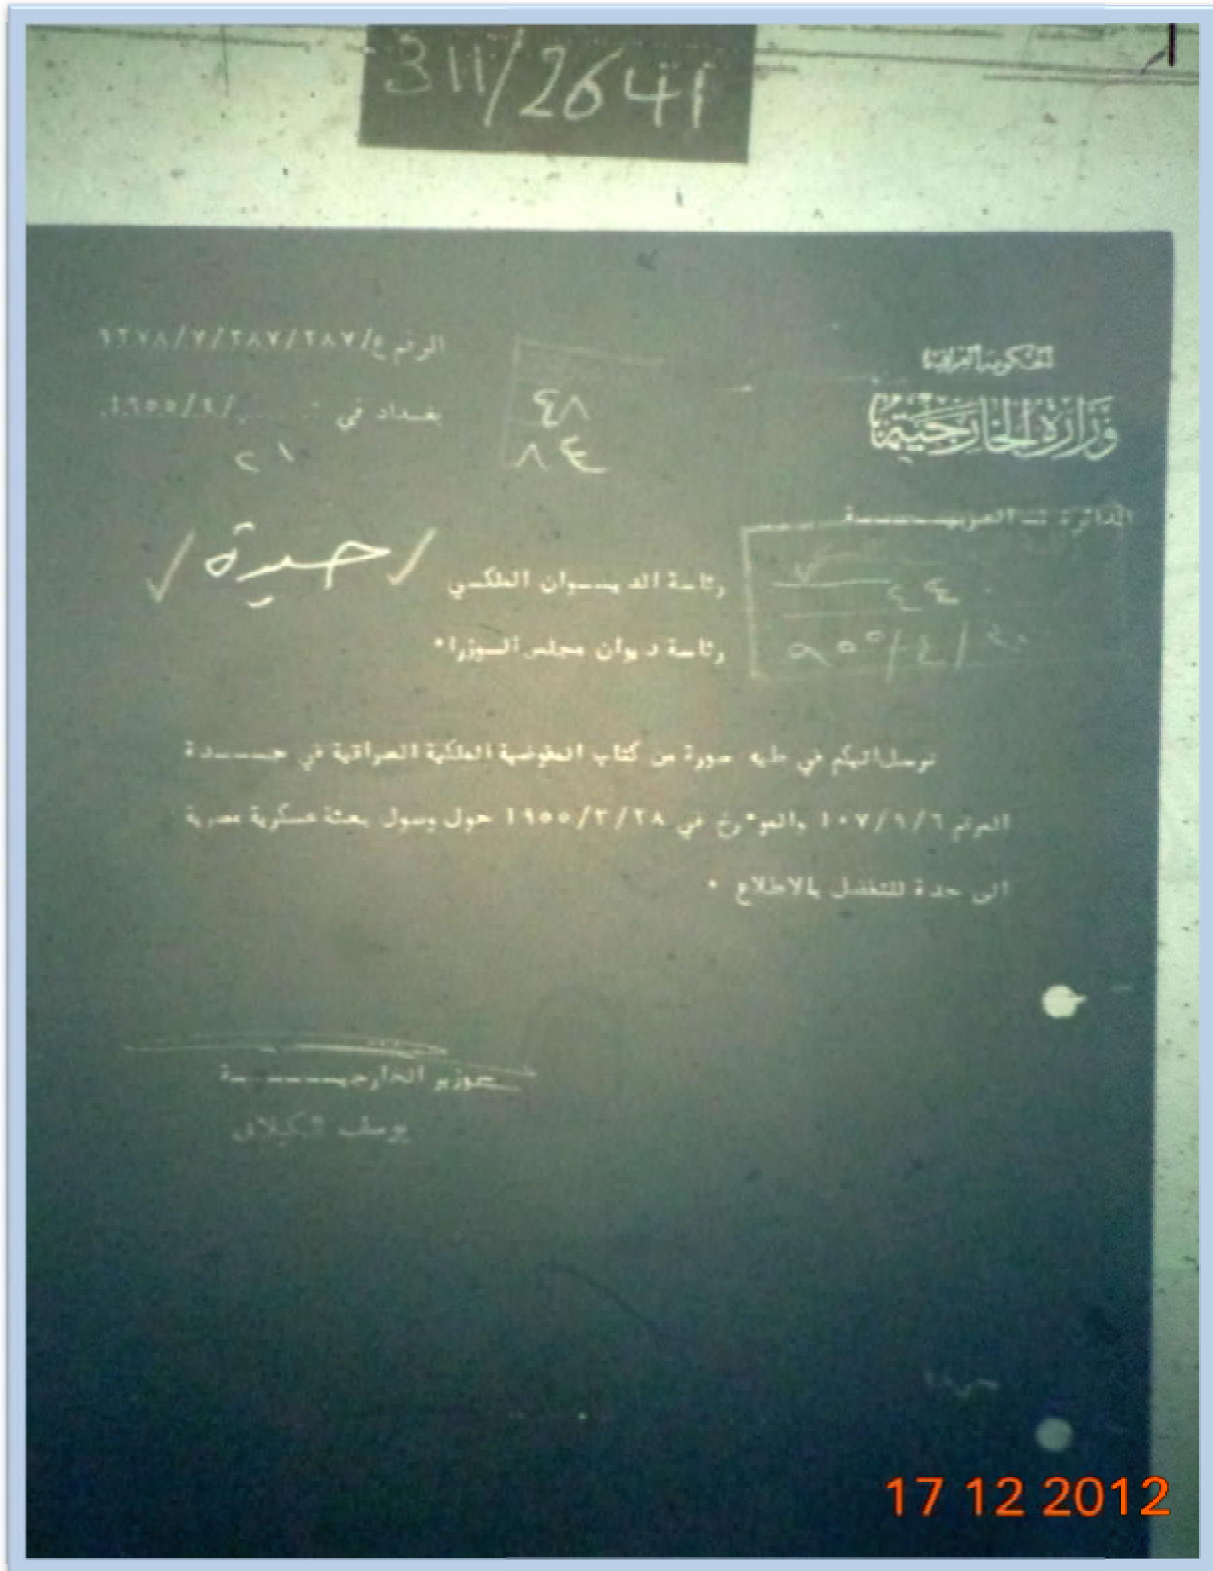 311/2641
الحكومة العراقية
وزارة الخارجية
الرقم ع/٢٨٧/٢٨٧/٧/
بغداد في /٤/١٩٥٥
٢١
٤٨
٤٨
الدائرة العربيـــــة
جدة
رئاسة الديـــوان الملكي
رئاسة ديوان مجلس الوزراء
نرسل اليكم في طيه صورة من كتاب المفوضية الملكية العراقية في جـــدة
المرقم ١٠٧/٩/٦ والمؤرخ في ١٩٥٥/٣/٢٨ حول وصول بعثة عسكرية مصرية
الى جدة للتفضل بالاطلاع ٠
وزير الخارجيـــــة
يوسف الكيلاني
17 12 2012